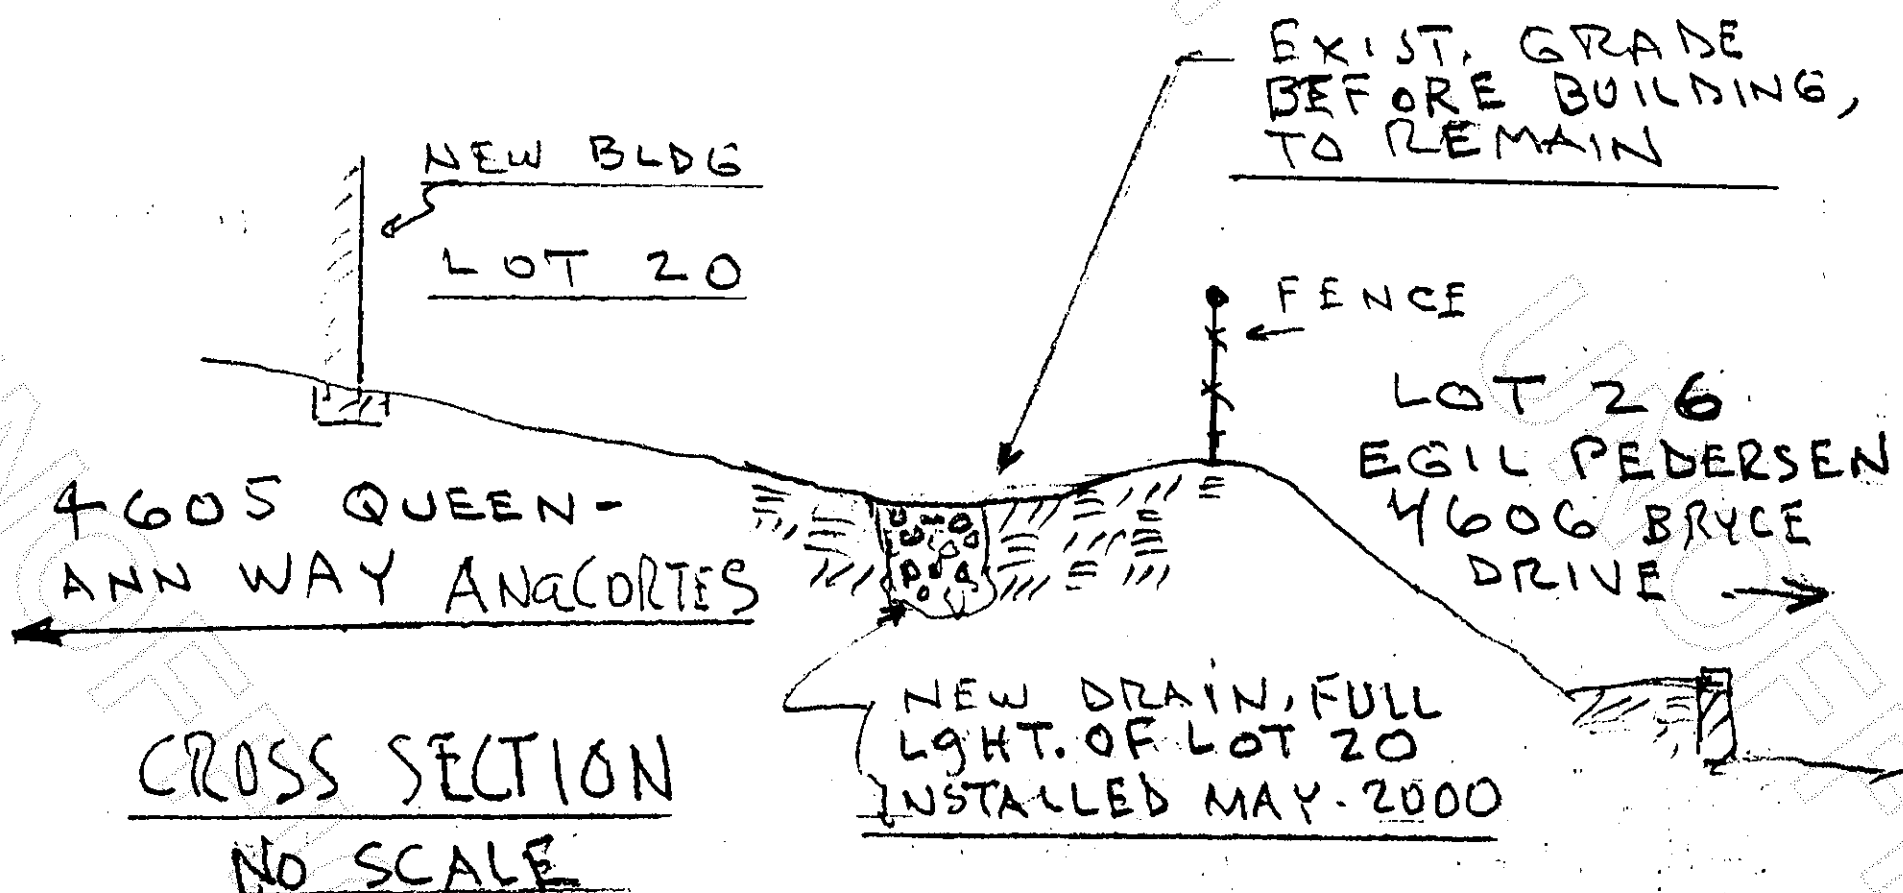 EXIST. GRADE
BEFORE BUILDING,
TO REMAIN
NEW BLDG
LOT 20
FENCE
LOT 26
EGIL PEDERSEN
4606 BRYCE
DRIVE
4605 QUEEN-
ANN WAY ANACORTES
NEW DRAIN, FULL
LGHT. OF LOT 20
INSTALLED MAY-2000
CROSS SECTION
NO SCALE